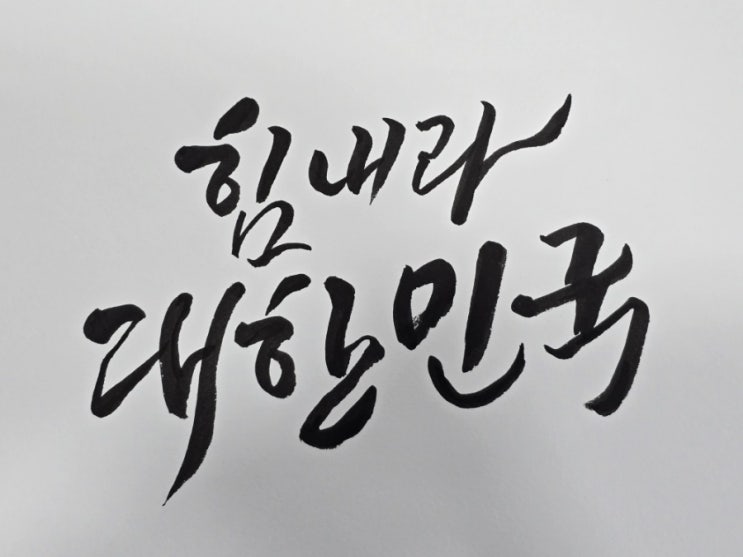 힘내라
대한민국